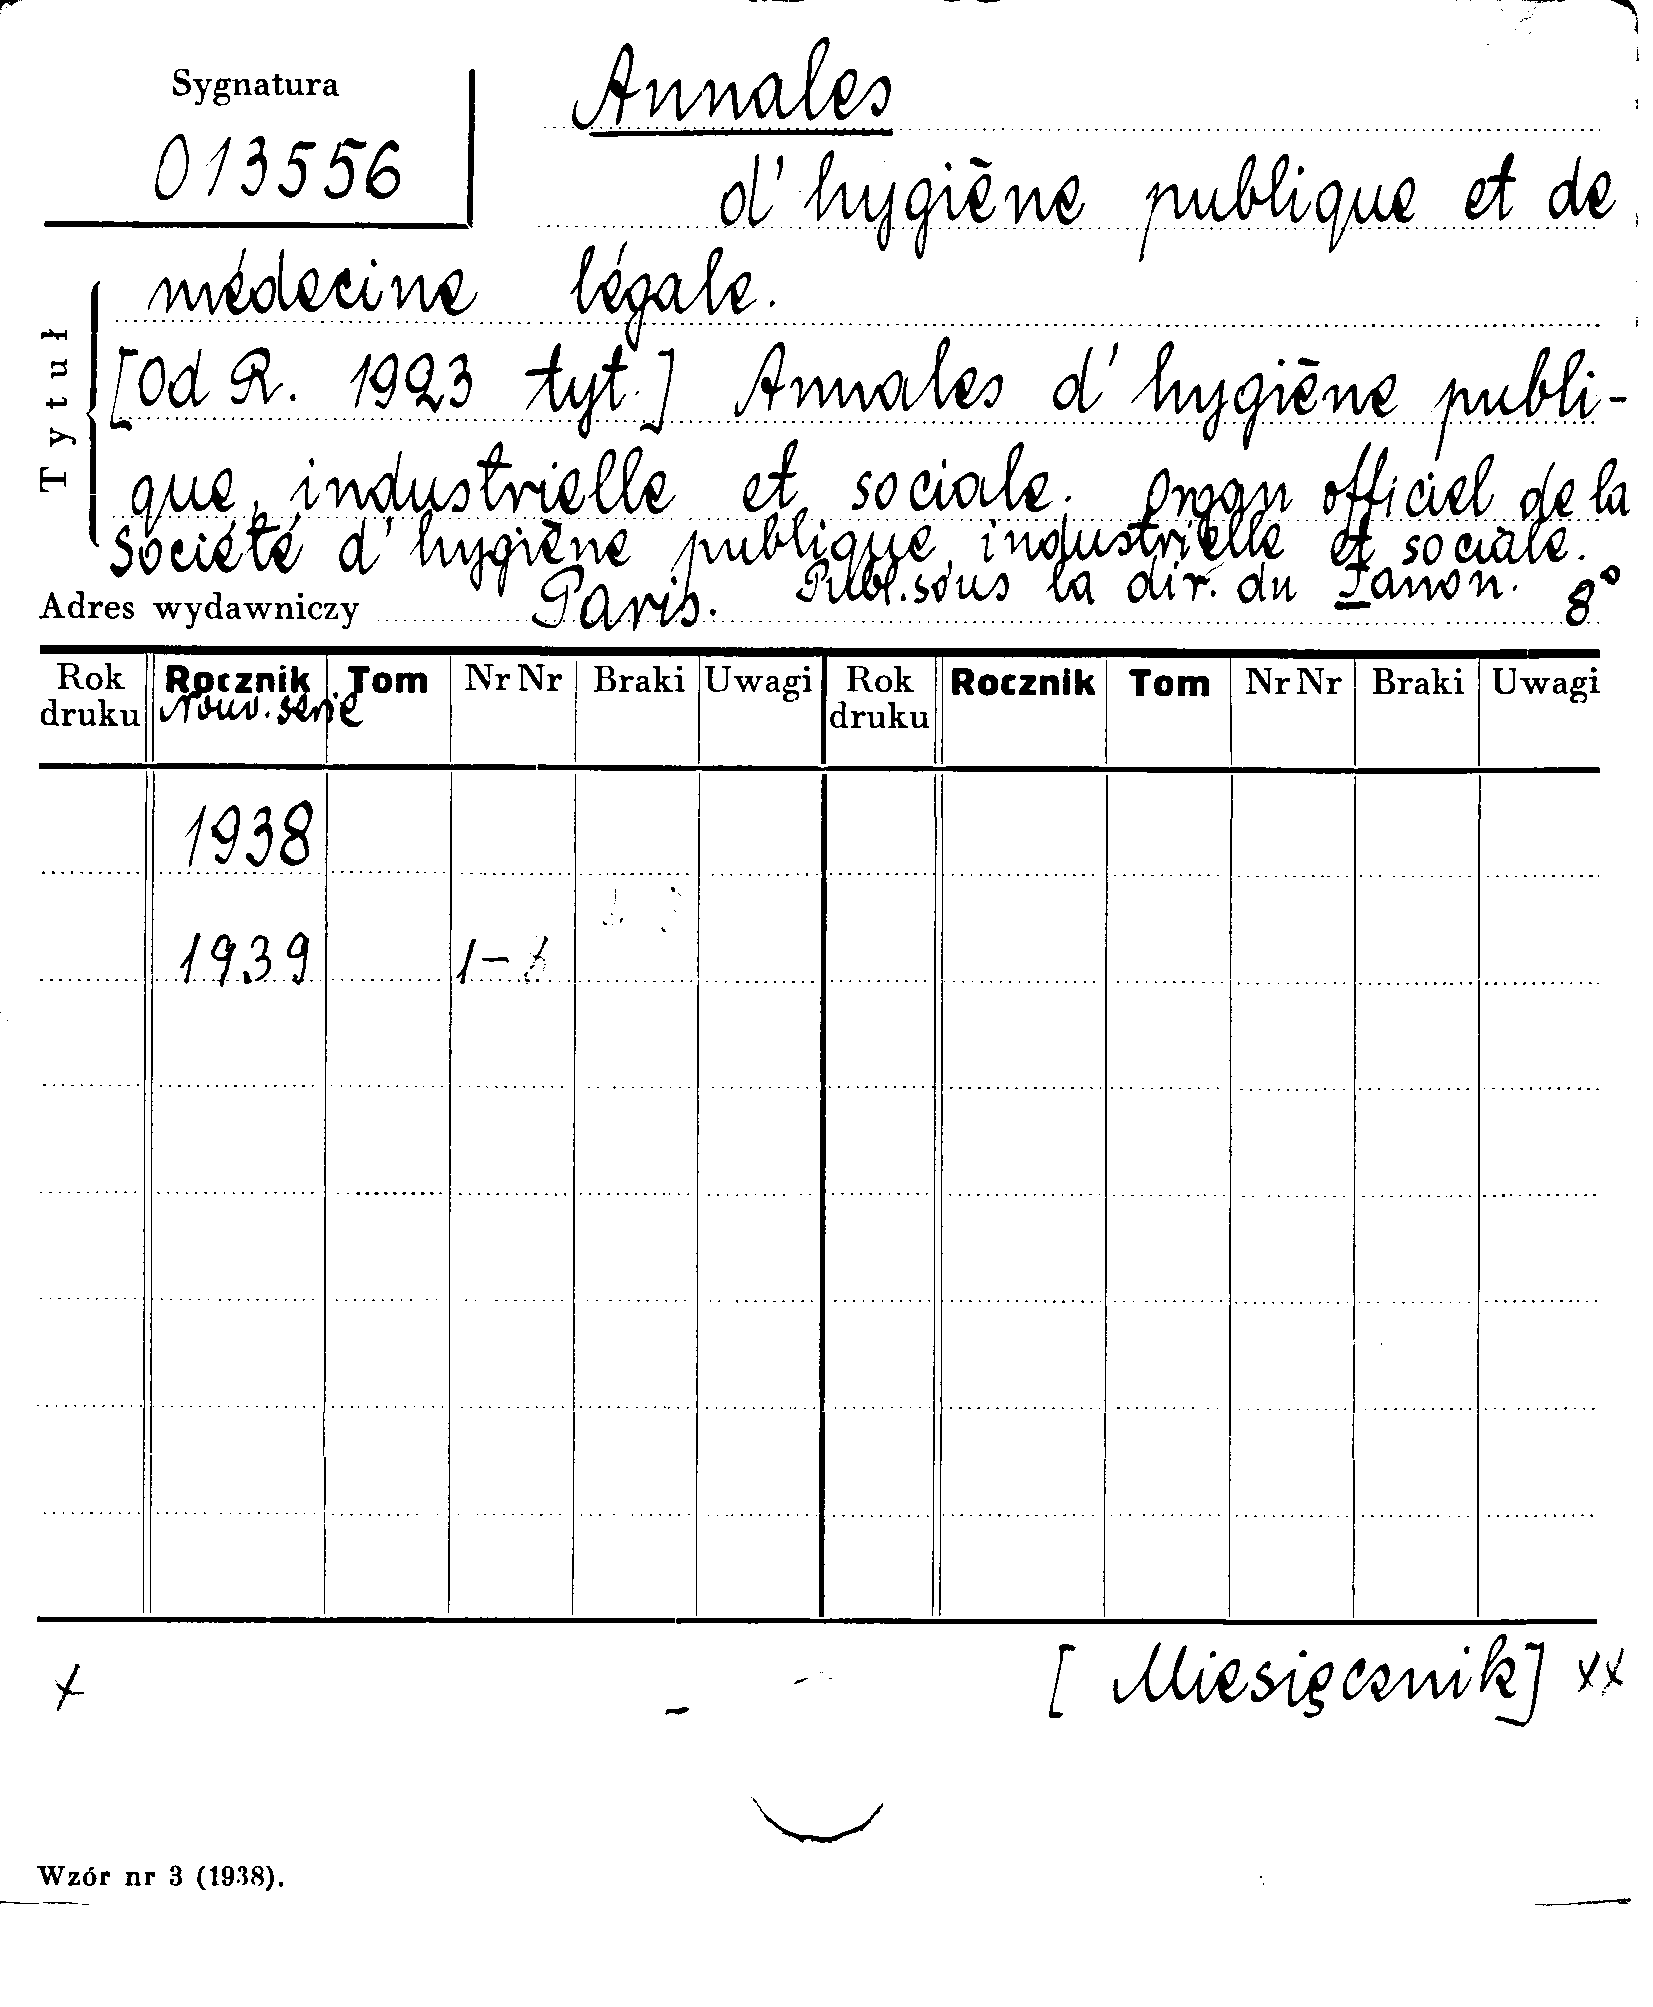 Sygnatura
013556
Annales
d'hygiène publique et de
médecine légale.
Tytuł
[Od R. 1923 tyt.] Annales d'hygiène publi-
que, industrielle et sociale. Organ officiel de la
Société d'hygiène publique, industrielle et sociale.
Publ. sous la dir. du Tanon.
Adres wydawniczy Paris. 8°
Rok druku Rocznik Tom Nr Nr Braki Uwagi Rok druku Rocznik Tom Nr Nr Braki Uwagi
Nouv. série
1938
1939 1-
x [Miesięcznik] xx
Wzór nr 3 (1938).